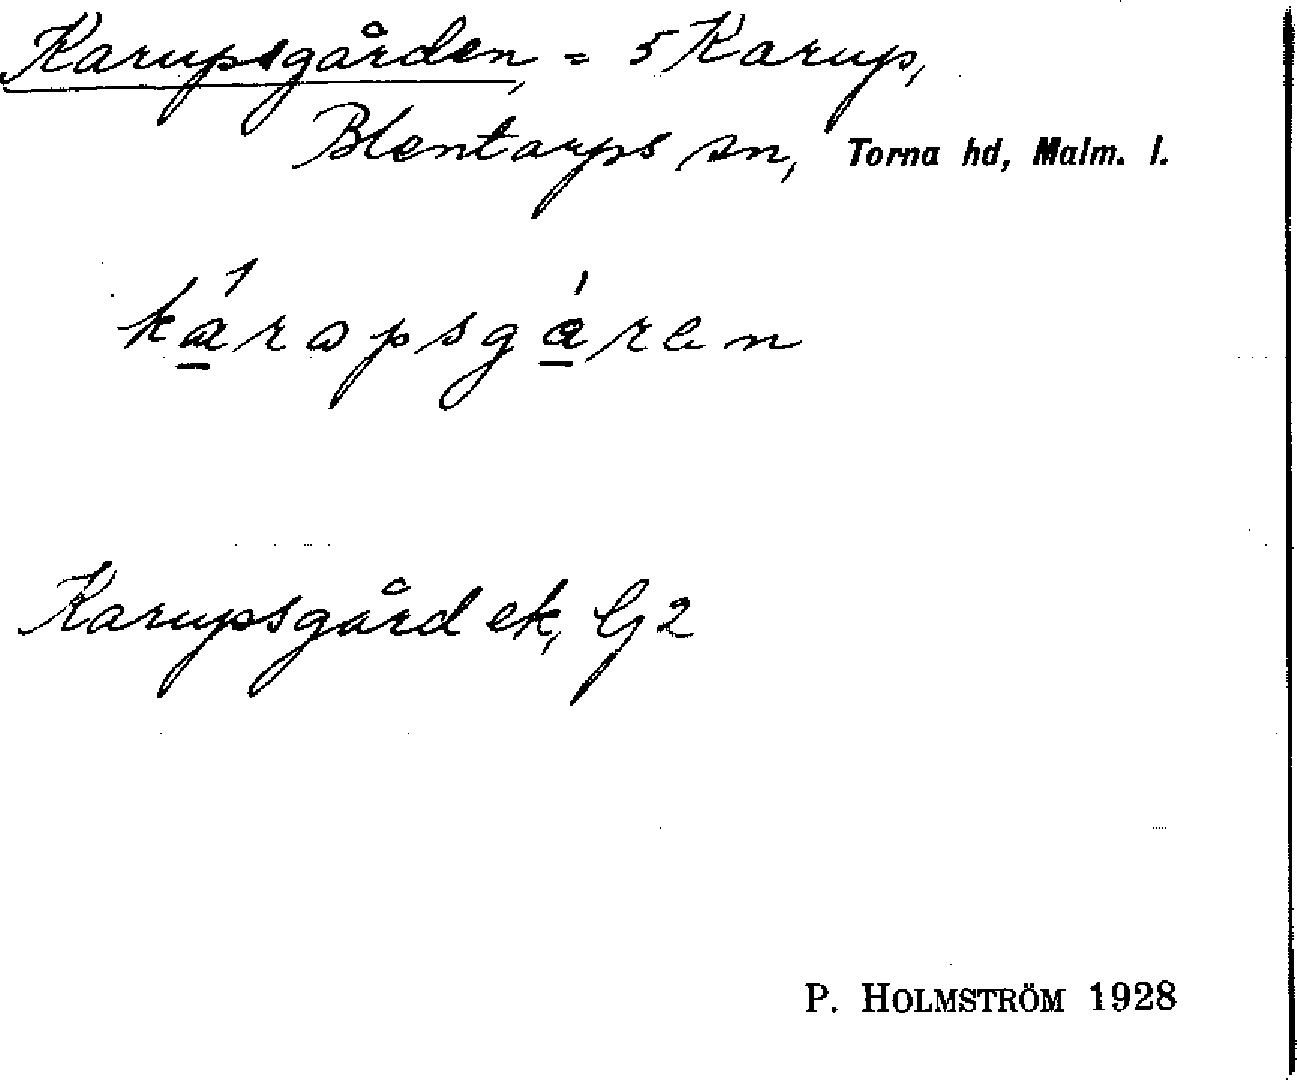 Karupsgården, = 5 Karup,
Blentarps sn, Torna hd, Malm. l.
ká̱rapsgá̱ren
Karupsgård ek, G2
P. HOLMSTRÖM 1928